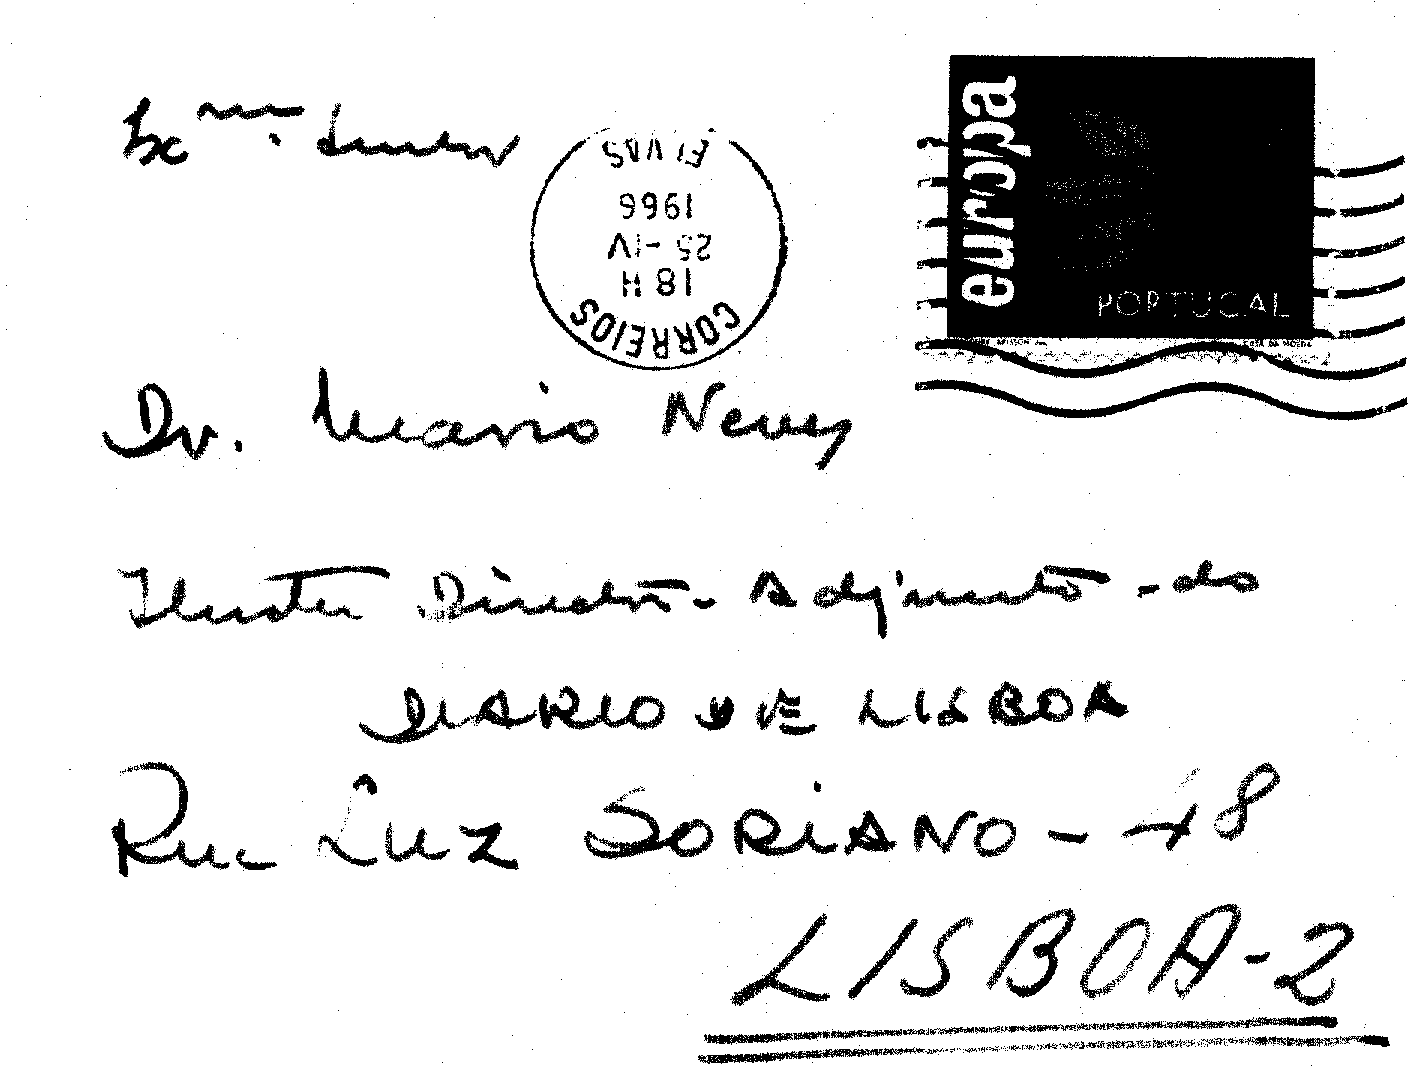 Exmo. Senhor
europa
PORTUGAL
CORREIOS
18 H
25 - IV
1966
ELVAS
Dr. Mario Neves
Ilustre Director-Adjunto do
DIARIO DE LISBOA
Rua Luz SORIANO - 48
LISBOA-2